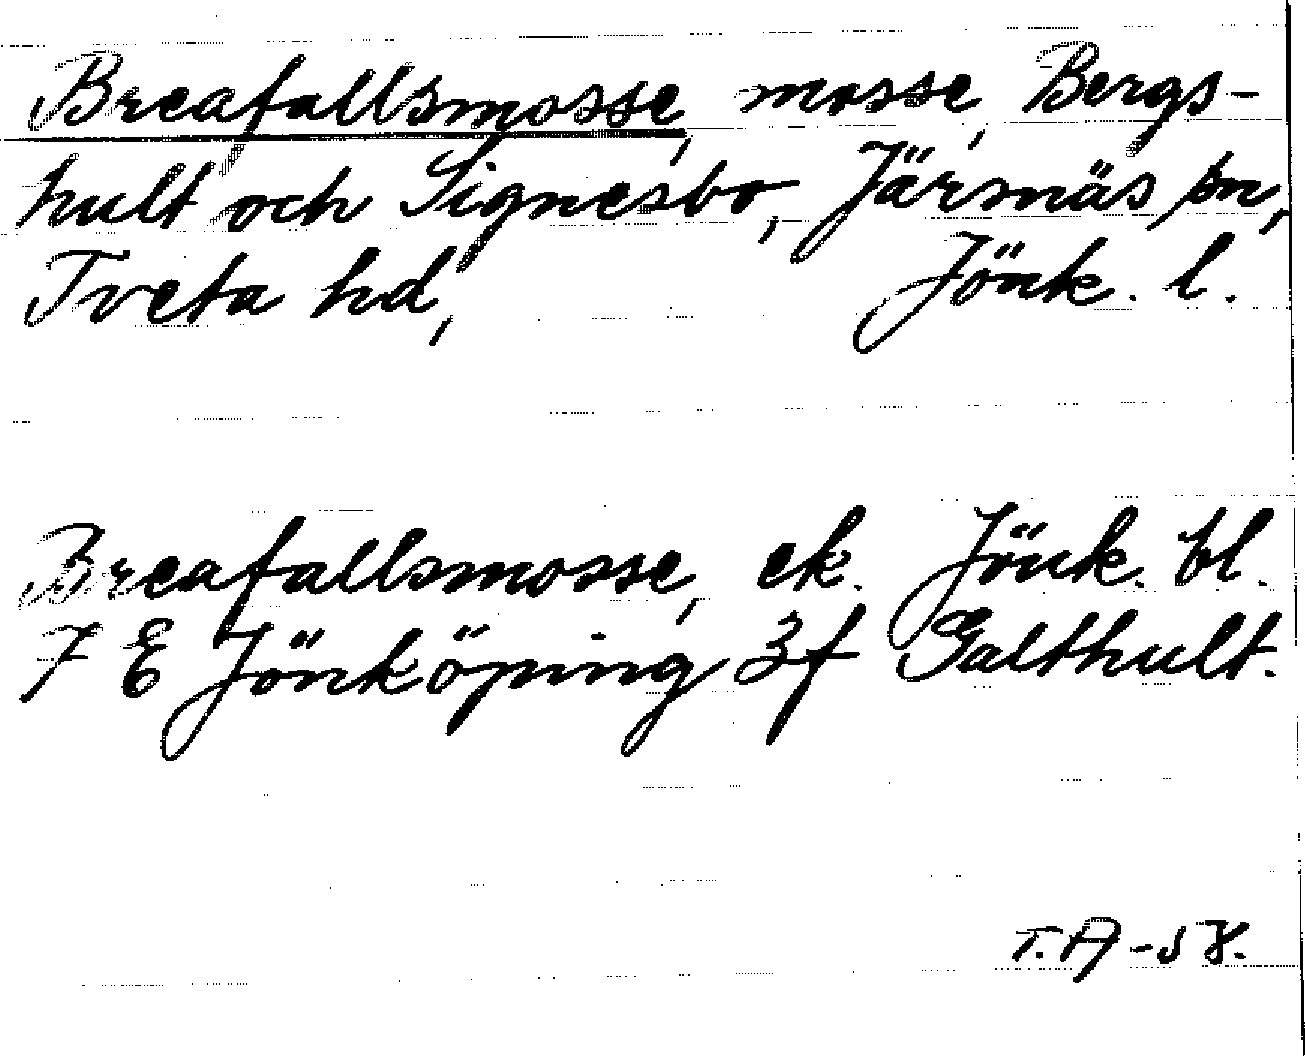 Breafallsmosse, mosse, Bergs-
hult och Signesbo, Järsnäs sn,
Tveta hd, Jönk. l.
Breafallsmosse, ek. Jönk. bl.
7 E Jönköping 3f Galthult.
T.A -58.